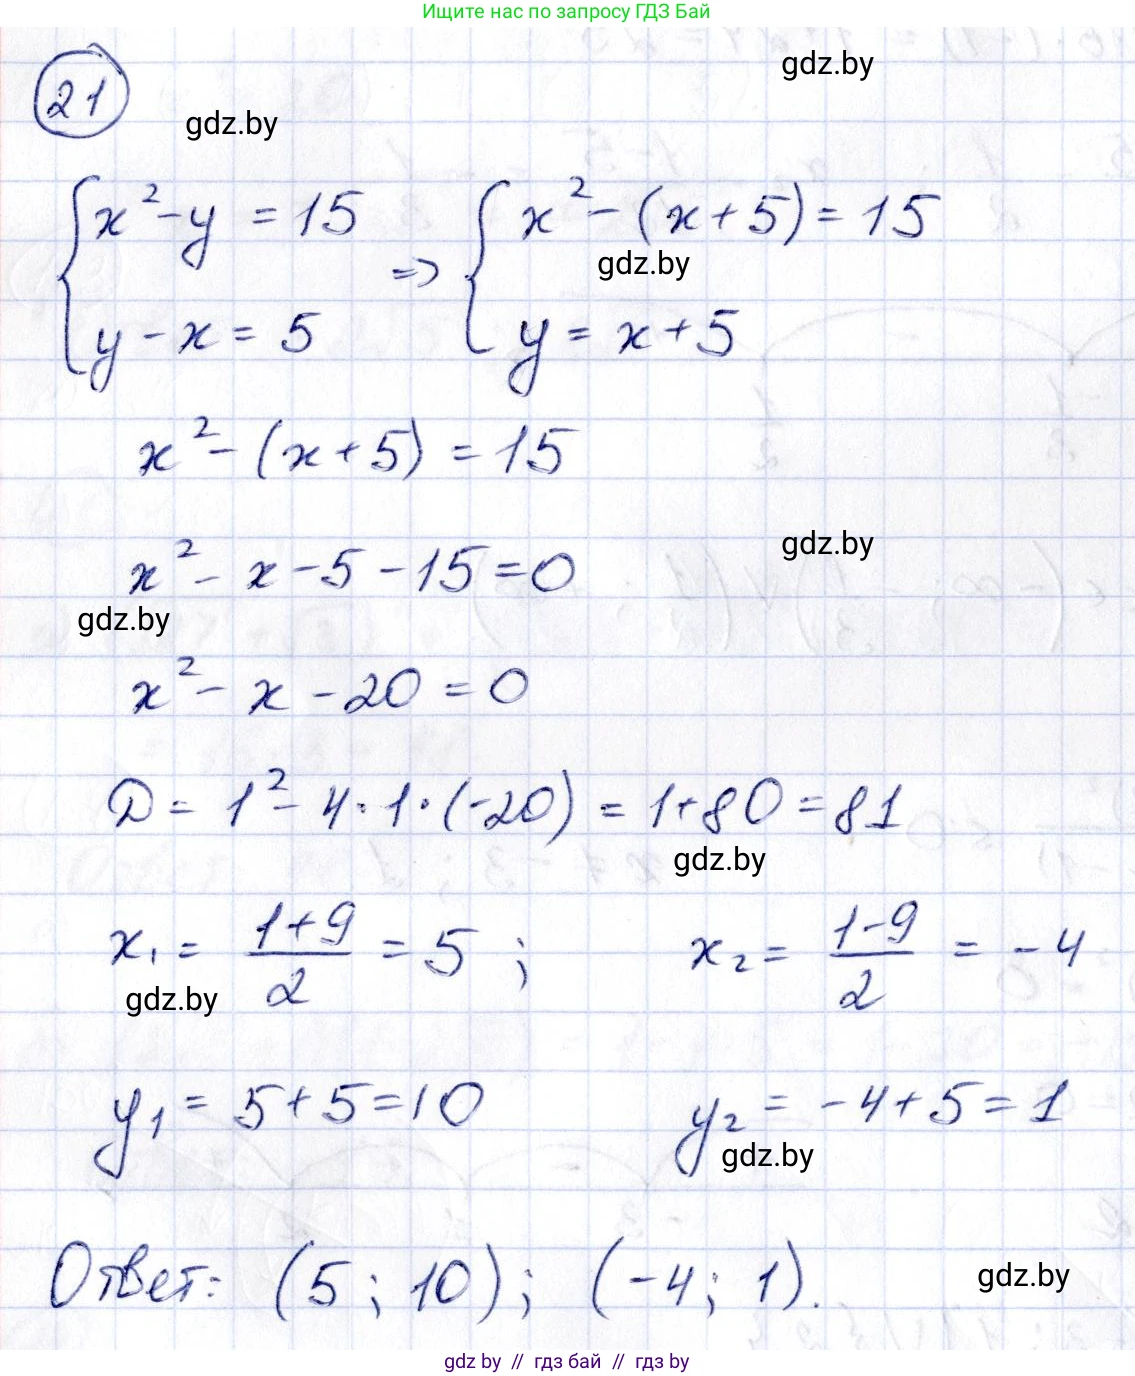 Ищите нас по запросу ГДЗ Бай
gdz.by
21
gdz.by
{ x² - y = 15 => { x² - (x + 5) = 15
gdz.by
y - x = 5 y = x + 5
x² - (x + 5) = 15
gdz.by
x² - x - 5 - 15 = 0
gdz.by
x² - x - 20 = 0
D = 1² - 4 · 1 · (-20) = 1 + 80 = 81
gdz.by
x₁ = (1+9)/2 = 5 ; x₂ = (1-9)/2 = -4
gdz.by
y₁ = 5 + 5 = 10 y₂ = -4 + 5 = 1
gdz.by
Ответ: (5 ; 10) ; (-4 ; 1).
gdz.by
gdz by // гдз бай // гдз by